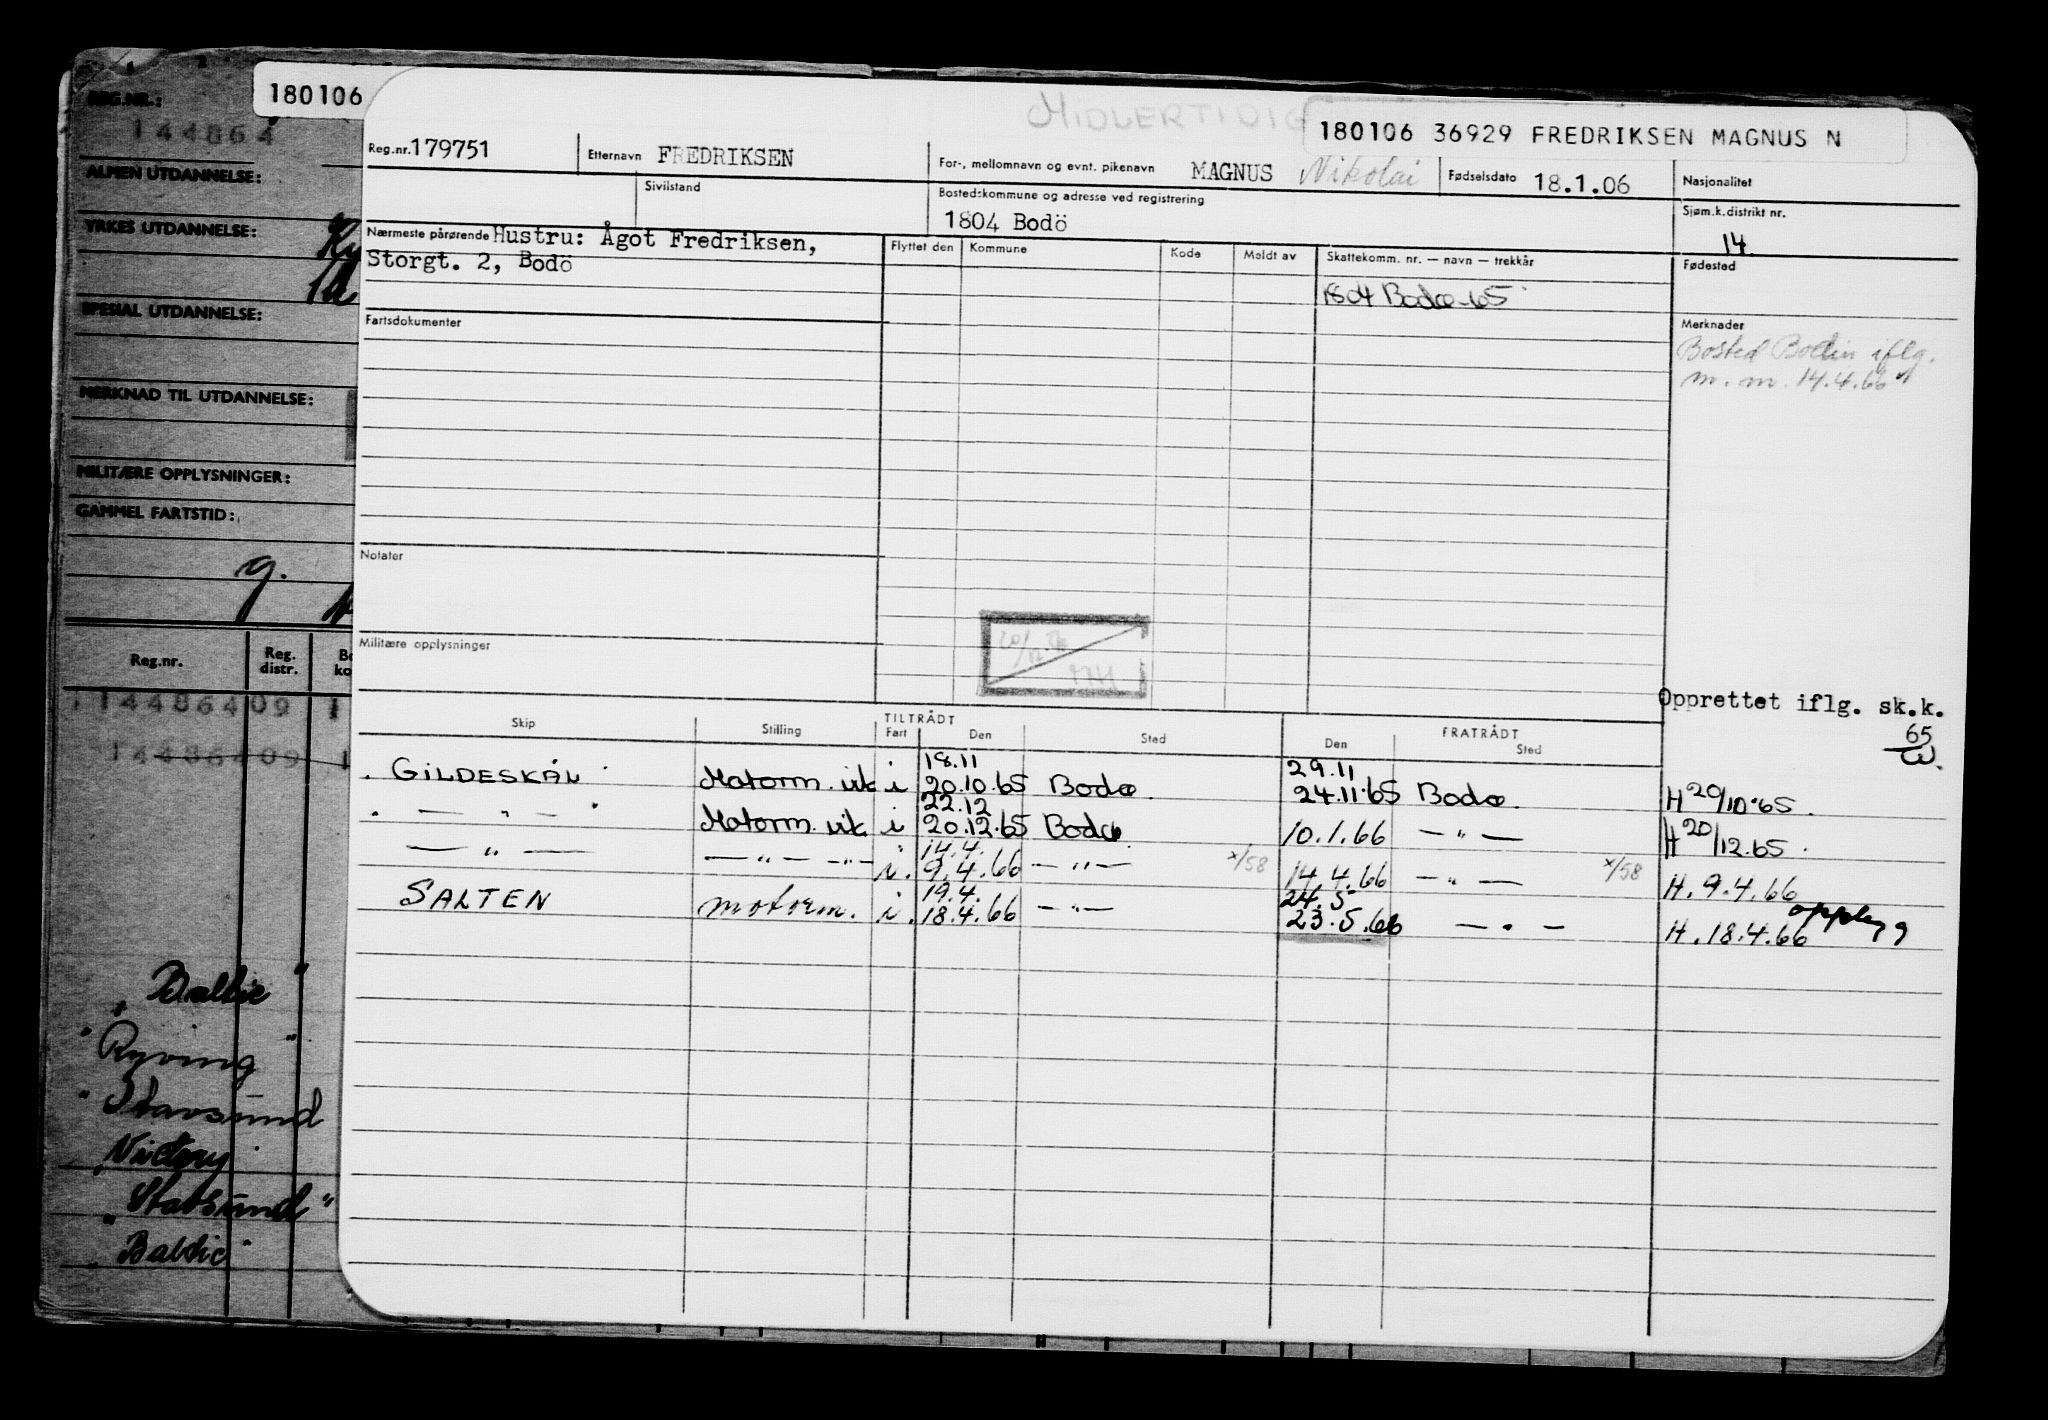 REG.NR.:
144864
ALMEN UTDANNELSE:
YRKES UTDANNELSE:
SPESIAL UTDANNELSE:
MERKNAD TIL UTDANNELSE:
MILITÆRE OPPLYSNINGER:
GAMMEL FARTSTID:
g.
Reg.nr.
Reg. distr.
14486409
14486409
"Baltic"
"Ryving"
"Stavsund
"Victory
"Stavsund"
"Baltic"
180106
MIDLERTIDIG
180106 36929 FREDRIKSEN MAGNUS N
Reg.nr. 179751 Etternavn FREDRIKSEN For-, mellomnavn og evnt. pikenavn MAGNUS Nikolai Fødselsdato 18.1.06 Nasjonalitet
Sivilstand Bostedskommune og adresse ved registrering 1804 Bodö Sjøm.k.distrikt nr. 14
Nærmeste pårørende Hustru: Ågot Fredriksen,
Storgt. 2, Bodö
Flyttet den Kommune Kode Meldt av Skattekomm. nr. — navn — trekkår Fødested
1804 Bodø-65
Fartsdokumenter
Merknader
Bosted Bodin iflg.
m.m. 14.4.66
Notater
Militære opplysninger
Opprettet iflg. sk.k.
65
Skip Stilling TILTRÅDT Fart Den Sted FRATRÅDT Den Sted
18.11 29.11
GILDESKÅL Motorm. vik i 20.10.65 Bodø 24.11.65 Bodø H 20/10.65.
22.12
— " — Motorm. vik. i 20.12.65 Bodø 10.1.66 — " — H 20/12.65.
14.4.
— " — — " — — " — i. 9.4.66 — " — x/58 14.4.66 — " — x/58 H. 9.4.66
19.4. 24.5
SALTEN motorm. i. 18.4.66 — " — 23.5.66 — " — H. 18.4.66